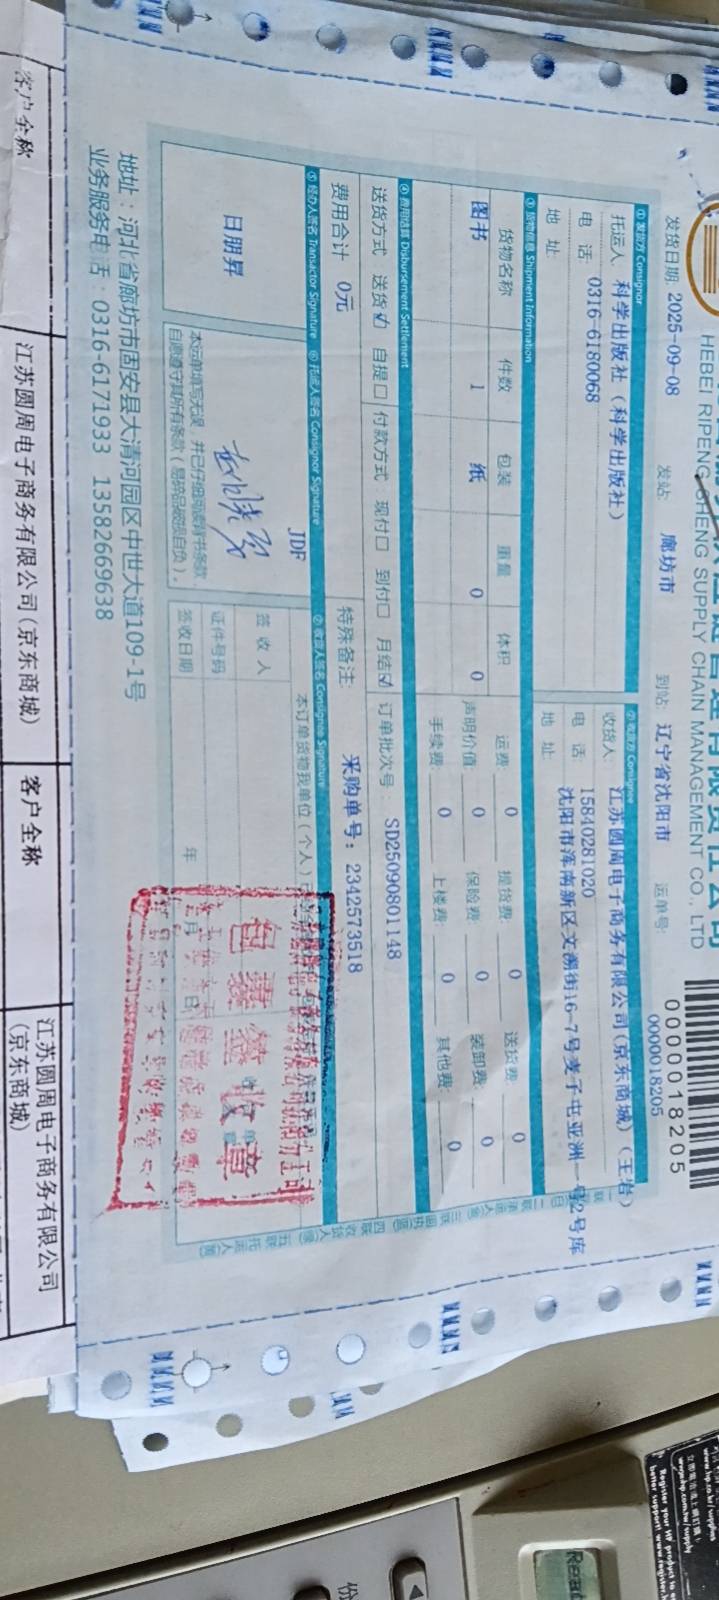 HEBEI RIPENG SHENG SUPPLY CHAIN MANAGEMENT CO., LTD
0000018205
发货日期: 2025-09-08 发站: 廊坊市 到站: 辽宁省沈阳市 运单号: 0000018205
① 发货方 Consignor
托运人: 科学出版社 (科学出版社)
电 话: 0316-6180068
地 址:
② 收货方 Consignee
收货人: 江苏圆周电子商务有限公司(京东商城) (王岩)
电 话: 15840281020
地 址: 沈阳市浑南新区文溯街16-7号麦子屯亚洲一号2号库
③ 货物信息 Shipment Information
货物名称 件数 包装 重量 体积
图书 1 纸 0 0
运费: 0 提货费: 0 送货费: 0
声明价值: 0 保险费: 0 装卸费: 0
手续费: 0 上楼费: 0 其他费: 0
④ 费用结算 Disbursement Settlement
送货方式 送货☑ 自提☐ 付款方式: 现付☐ 到付☐ 月结☑ 订单批次号: SD25090801148
费用合计 0元 特殊备注: 采购单号: 2342573518
⑤ 经办人签名 Transactor Signature ⑥ 托运人签名 Consignor Signature ⑦ 收货人签名 Consignee Signature
日朋昇
JDF
本运单填写无误, 并已仔细阅读背书条款
自愿遵守其所有条款(易碎品破损自负).
本订单货物我单位(个人)
签 收 人
证件号码
签收日期 年 月 日
包裹签收章
地址: 河北省廊坊市固安县大清河园区中世大道109-1号
业务服务电话: 0316-6171933 13582669638
客户全称 江苏圆周电子商务有限公司(京东商城) 客户全称 江苏圆周电子商务有限公司
(京东商城)
Register your HP product
better support! www.register.h
www.hp.com/supply
份